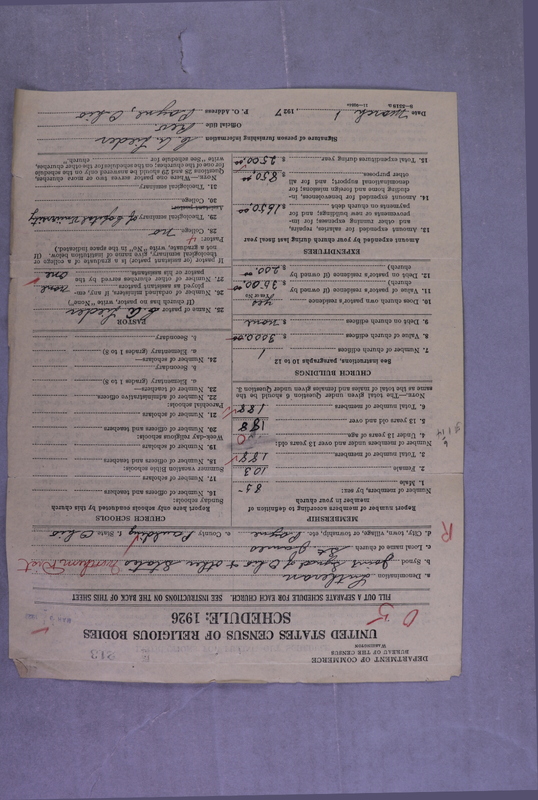 DEPARTMENT OF COMMERCE
BUREAU OF THE CENSUS
WASHINGTON
213
UNITED STATES CENSUS OF RELIGIOUS BODIES
SCHEDULE: 1926
FILL OUT A SEPARATE SCHEDULE FOR EACH CHURCH. SEE INSTRUCTIONS ON THE BACK OF THIS SHEET
a. Denomination Lutheran
b. Synod Joint Synod of Ohio & other States Northern Dist
c. Local name of church St James
d. City, town, village, or township, etc. Payne e. County Paulding f. State Ohio
MEMBERSHIP
Report here members according to definition of
member in your church
Number of members, by sex:
1. Male 85
2. Female 103
3. Total members 188
Number of members under and over 13 years old:
4. Under 13 years of age
5. 13 years old and over 188
6. Total number of members 188
NOTE.—The total given under Question 6 should be the
same as the total of males and females given under Question 3.
CHURCH BUILDINGS
See instructions, paragraphs 10 to 12
7. Number of church edifices 1
8. Value of church edifices $ 3000.00
9. Debt on church edifices $ none
10. Does church own pastor's residence yes
11. Value of pastor's residence (if owned by
church) $ 3500.00
12. Debt on pastor's residence (if owned by
church) $ 200.00
EXPENDITURES
Amount expended by your church during last fiscal year
13. Amount expended for salaries, repairs,
and other running expenses; for im-
provements or new buildings; and for
payments on church debt $ 1650.00
14. Amount expended for benevolences, in-
cluding home and foreign missions; for
denominational support; and for all
other purposes $ 850.00
15. Total expenditures during year $ 2500.00
CHURCH SCHOOLS
Report here only schools conducted by this church
Sunday schools:
16. Number of officers and teachers
17. Number of scholars
Summer vacation Bible schools:
18. Number of officers and teachers
19. Number of scholars
Week-day religious schools:
20. Number of officers and teachers
21. Number of scholars
Parochial schools:
22. Number of administrative officers
23. Number of teachers—
a. Elementary (grades 1 to 8)
b. Secondary
24. Number of scholars—
a. Elementary (grades 1 to 8)
b. Secondary
PASTOR
25. Name of pastor
(If church has no pastor, write "None")
26. Number of ordained ministers, if any, em-
ployed as assistant pastors none
27. Number of other churches served by the
pastor or his assistants one
If pastor (or assistant pastor) is a graduate of a college or
theological seminary, give name of institution below. (If
not a graduate, write "No" in the space indicated.)
28. Pastor: College no
29. Theological seminary of Capital University
30. College
31. Theological seminary
NOTE.—Where one pastor serves two or more churches,
Questions 28 and 29 should be answered only on the schedule
for one of the churches; on the schedules for the other churches,
write "See schedule for church."
Signature of person furnishing information
Official title
Date March 1, 1927 P. O. Address Payne, Ohio